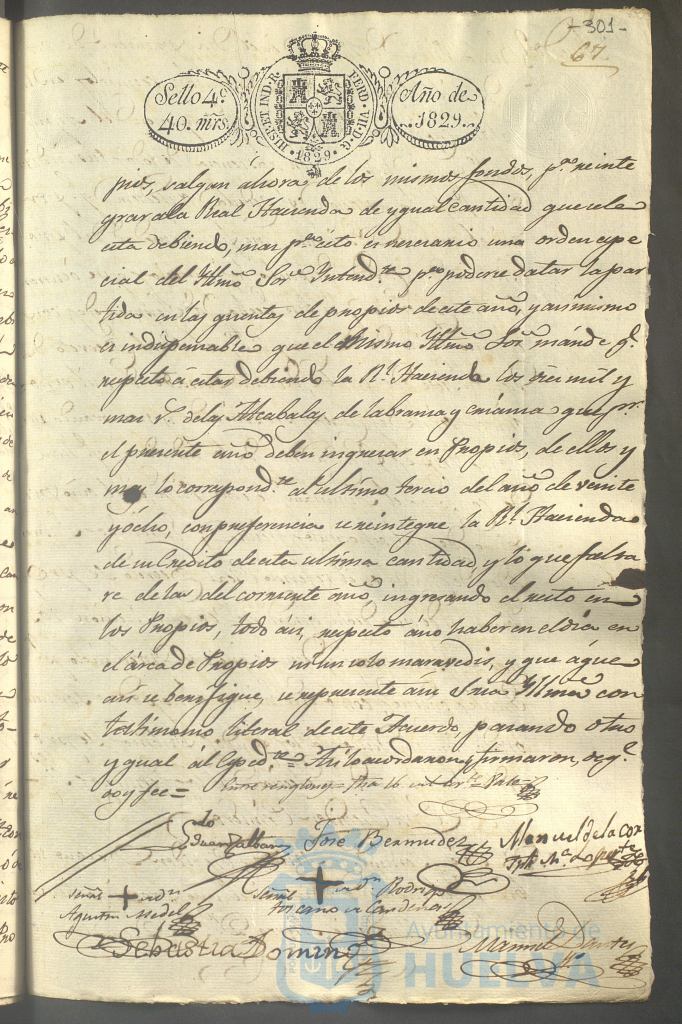 -301-
67.
Sello 4º
40. mrs.
HISP. ET IND. R.
FERD. VII. D. G.
1829.
Año de
1829.
pios, salgan ahora de los mismos fondos, pª reinte
grar ala Real Hacienda de ygual cantidad que se la
esta debiendo, mas pª esto es necesario una orden espe
cial del Illmo Sor Intendte pª poderse datar la par
tida en las quentas de propios de este año, y asimismo
es indispensable que el mismo Illmo Sor mande qe
respecto á estar debiendo la Rl Hacienda los mil y
mas rs de las Alcabalas de labranza y crianza que pr
el presente año deben ingresar en Propios, de ellos y
mas lo correspondte al ultimo tercio del año de veinte
y ócho, con preferencia se reintegre la Rl Hacienda
de su Credito de esta ultima cantidad y lo que falta
re de las del corriente año, ingresando el resto en
los Propios, todo ási, respecto áno haber en el dia en
el árca de Propios ni un solo maravedis, y que á que
asi se berifique, se represente ási S ria Yllma con
testimonio literal de este Acuerdo, pasando otro
y ygual ál Expedte Asi lo acordaron y firmaron, de qe
doy fee= Entre renglones Vale=
José Bermudez
Manuel de la Cor
te
señal + de
Agustin Medel
señal + de Rodrigo
toscano de Cardenas
Sebastian Domin
Manuel
Ayuntamiento de
HUELVA